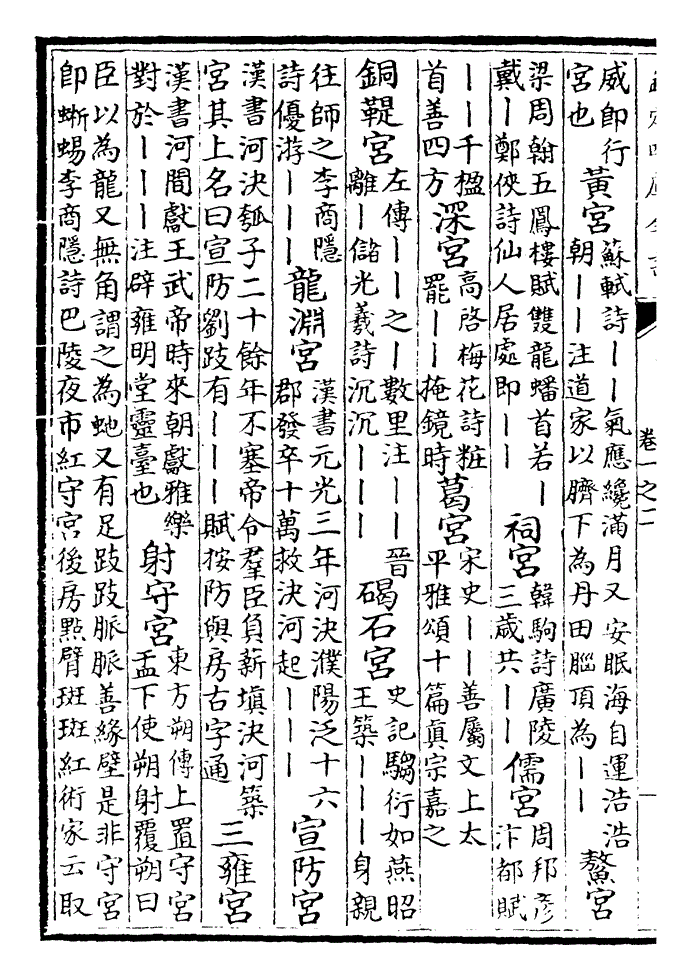 卷一之二
威即行宮也黃宮蘇軾詩——氣應纔滿月又安眠海自運浩浩朝——注道家以臍下為丹田腦頂為——鰲宮
梁周翰五鳳樓賦雙龍蟠首若—戴—鄭俠詩仙人居處即——祠宮韓駒詩廣陵三歲共——儒宮周邦彥汴都賦
——千楹首善四方深宮高啓梅花詩粧罷——掩鏡時葛宮宋史——善屬文上太平雅頌十篇真宗嘉之
銅鞮宮左傳——之—數里注———晉離—儲光羲詩沉沉———碣石宮史記騶衍如燕昭王築———身親
往師之李商隱詩優游———龍淵宮漢書元光三年河決濮陽泛十六郡發卒十萬救決河起———宣防宮
漢書河決瓠子二十餘年不塞帝令羣臣負薪填決河築宮其上名曰宣防劉跂有———賦按防與房古字通三雍宮
漢書河間獻王武帝時來朝獻雅樂對於———注辟雍明堂靈臺也射守宮東方朔傳上置守宮盂下使朔射覆朔曰
臣以為龍又無角謂之為虵又有足跂跂脈脈善緣壁是非守宮即蜥蜴李商隱詩巴陵夜市紅守宮後房點臂斑斑紅術家云取